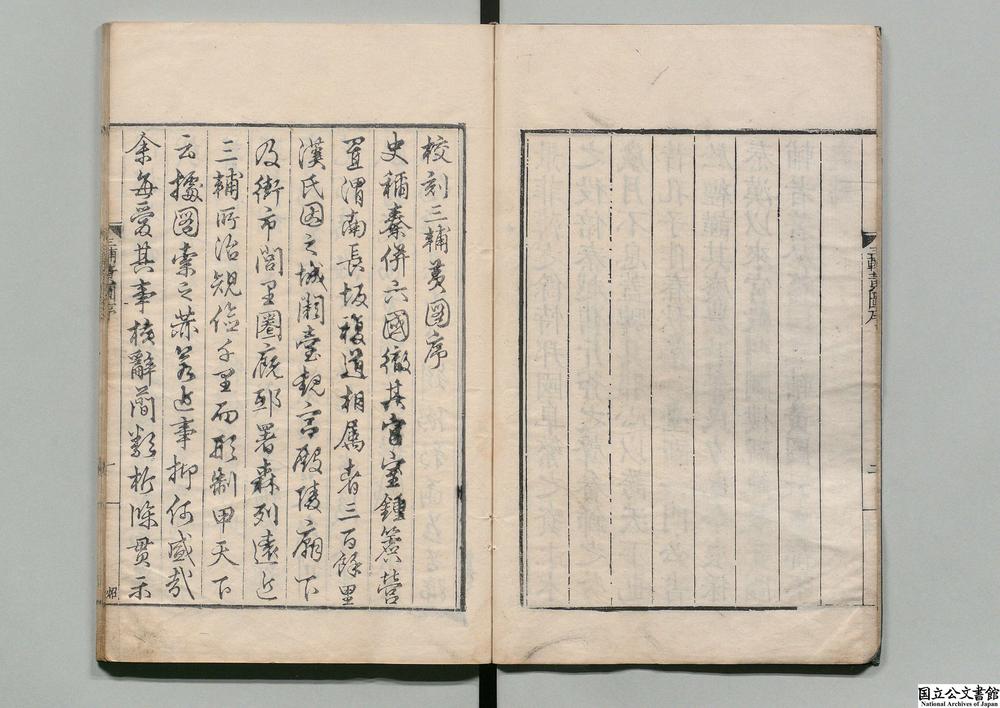 校刻三輔黄圖序
史稱秦併六國徹其宮室鍾簴營
置渭南長坂複道相属者三百餘里
漢氏因之城闕臺觀宮殿陵廟下
及街市閭里圈廐邸署森列遠近
三輔所治規儗千里而形制甲天下
云據圖索之茲若近事抑何盛哉
余每愛其事核辭簡類析條貫示
三輔黄圖序
一
三輔黄圖序
二
国立公文書館
National Archives of Japan